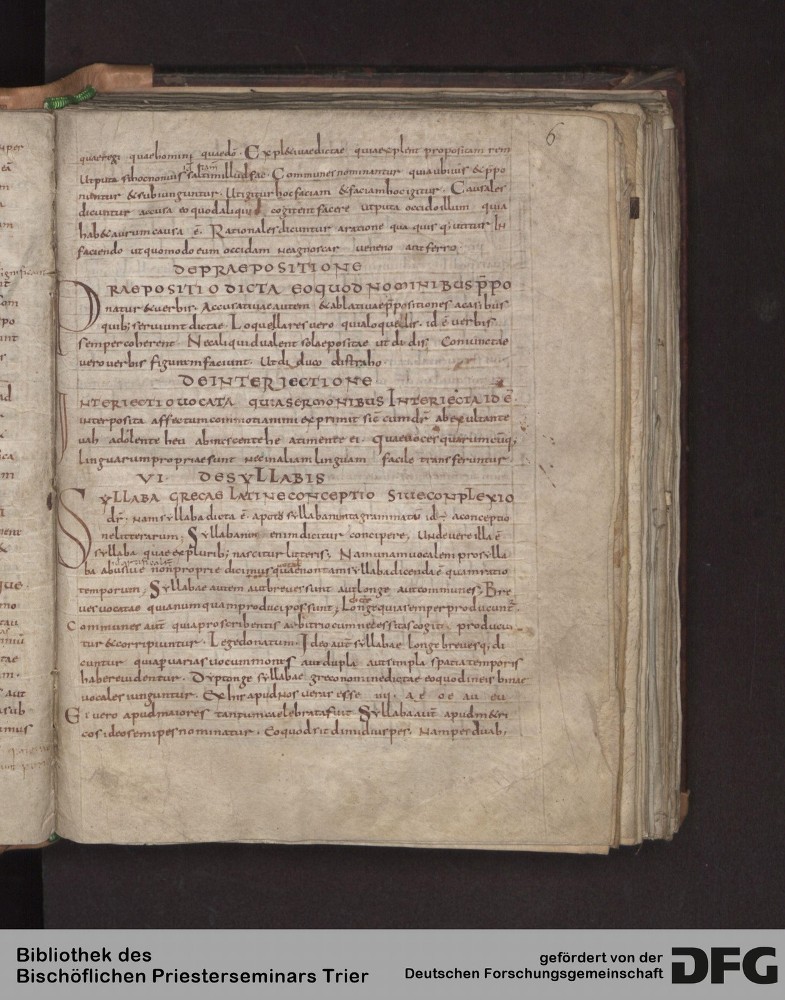 6
quae regi quae homini quaedā. Expl&iuae dictae quia explent propositam rem
Utputa si hoc non uis saltim illud fac. Communes nominantur quia ubiuis &p̄po
nuntur &subiunguntur. Ut igitur hoc faciam &faciam hoc igitur. Causales
dicuntur a causa eo quod aliquid cogitent facere utputa occido illum quia
hab& aurum causa ē. Rationales dicuntur a ratione qua quis q; utitur In
faciendo ut quomodo eum occidam ne agnoscar ueneno aut ferro
DE PRAEPOSITIONE
PRAEPOSITIO DICTA EO QUOD NOMINIBUS P̄PO
natur &uerbis. Accusatiuae autem &ablatiuae p̄positiones a casibus
quib; seruiunt dictae. Loquellares uero quia loquellis. id ē uerbis
semper coherent. Nec aliquid ualent solae positae ut di dis. Coniunctae
uero uerbis figuram faciunt. Ut di duco distraho
DE INTERIECTIONE
INTERIECTIO UOCATA QUIA SERMONIBUS INTERIECTA ID Ē
interposita affectum commoti animi exprimit sic cum dr̄ ab exultante
uah a dolente heu ab irascente he a timente ei. Quae uoces quarumcuq;
linguarum propriae sunt nec in aliam linguam facile transferuntur.
VI DE SYLLABIS
SYLLABA GRECAE LATINE CONCEPTIO SIUE CONPLEXIO
dr̄. Nam syllaba dicta ē. apo tō syllabanin ta grammata id ē a conceptio
ne litterarum; Syllabanin enim dicitur concipere; Unde uere illa ē
syllaba quae ex plurib; nascitur litteris; Nam unam uocalem pro sylla
ba abusiue non proprie dicimus quae non tam syllaba dicenda ē quam ratio
temporum; Syllabae autem aut breues sunt aut longe aut communes; Bre
ues uocatae quia numquam produci possunt; Longe quia semper producunt̄
Communes aut̄ quia pro scribentis arbitrio cum necessitas cogit producun
tur &corripiuntur. Lege donatum. Ideo aut̄ syllabae longe breuesq; di
cuntur quia p̄ uarias uocum moras aut dupla aut simpla spatia temporis
habere uidentur. Dyptonge syllabae greco nomine dictae eo quod in eis binae
uocales iunguntur. Ex his apud nos ueras esse IIII. ae oe au eu
Ei uero apud maiores tantum caelebrata fuit Syllaba aut̄ apud metri
cos ideo semipes nominatur. Eo quod sit dimidius pes; Nam per duab;
Bibliothek des
Bischöflichen Priesterseminars Trier
gefördert von der
Deutschen Forschungsgemeinschaft
DFG